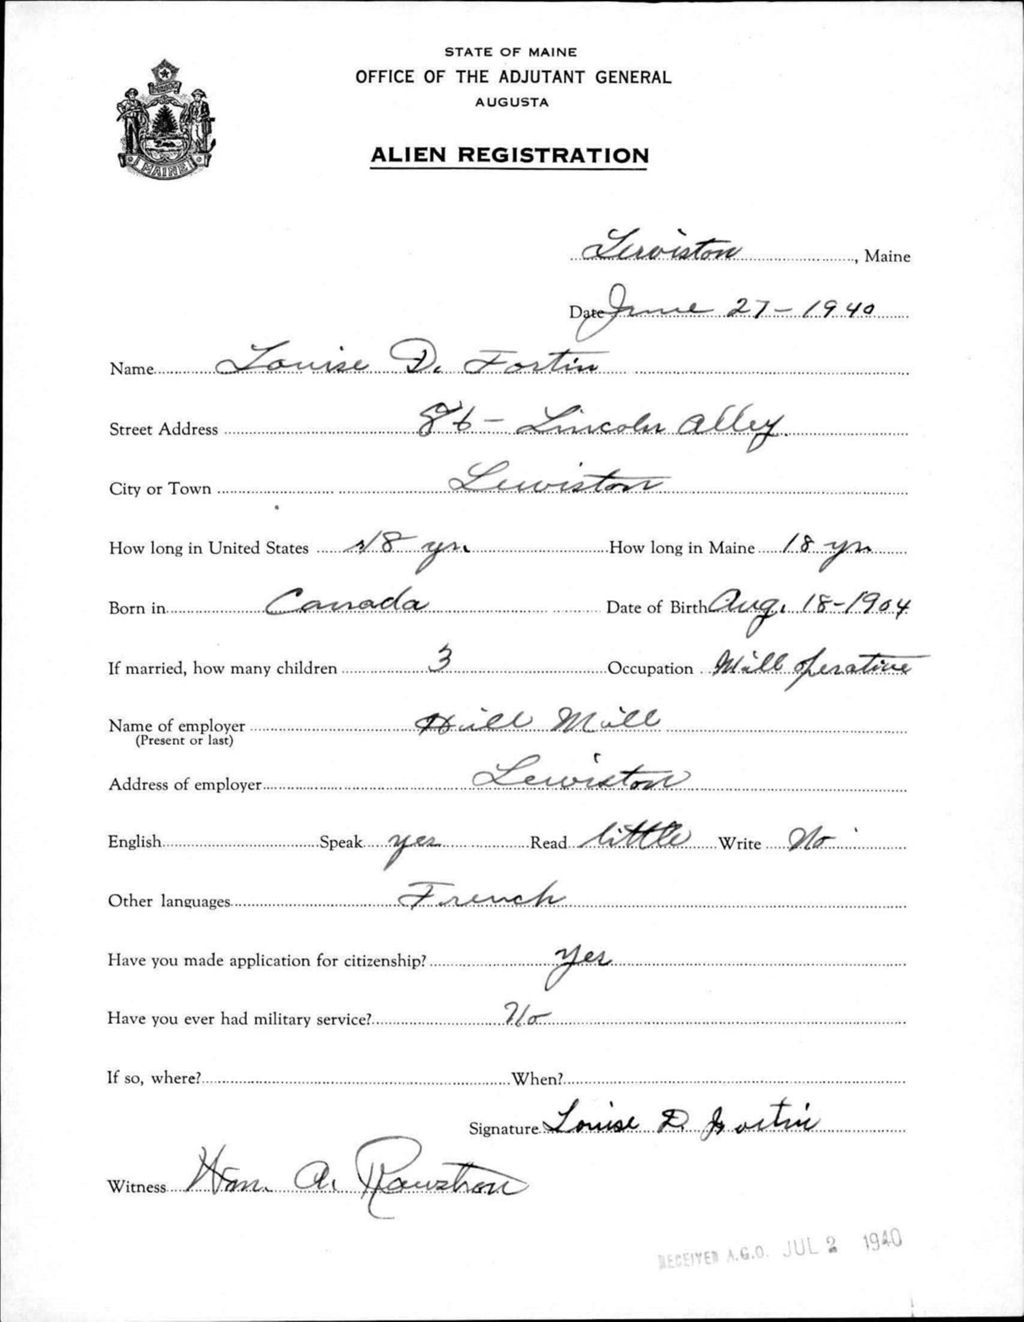 STATE OF MAINE
OFFICE OF THE ADJUTANT GENERAL
AUGUSTA
ALIEN REGISTRATION
MAINE
Lewiston, Maine
Date June 27-1940
Name Louise D. Fortin
Street Address 86 - Lincoln Alley
City or Town Lewiston
How long in United States 18 yrs How long in Maine 18 yrs
Born in Canada Date of Birth Aug. 18-1904
If married, how many children 3 Occupation Mill operative
Name of employer Hill Mill
(Present or last)
Address of employer Lewiston
English Speak yes Read little Write No
Other languages French
Have you made application for citizenship? Yes
Have you ever had military service? No
If so, where? When?
Signature Louise D Fortin
Witness Wm. A. Rawstron
RECEIVED A.G.O. JUL 2 1940